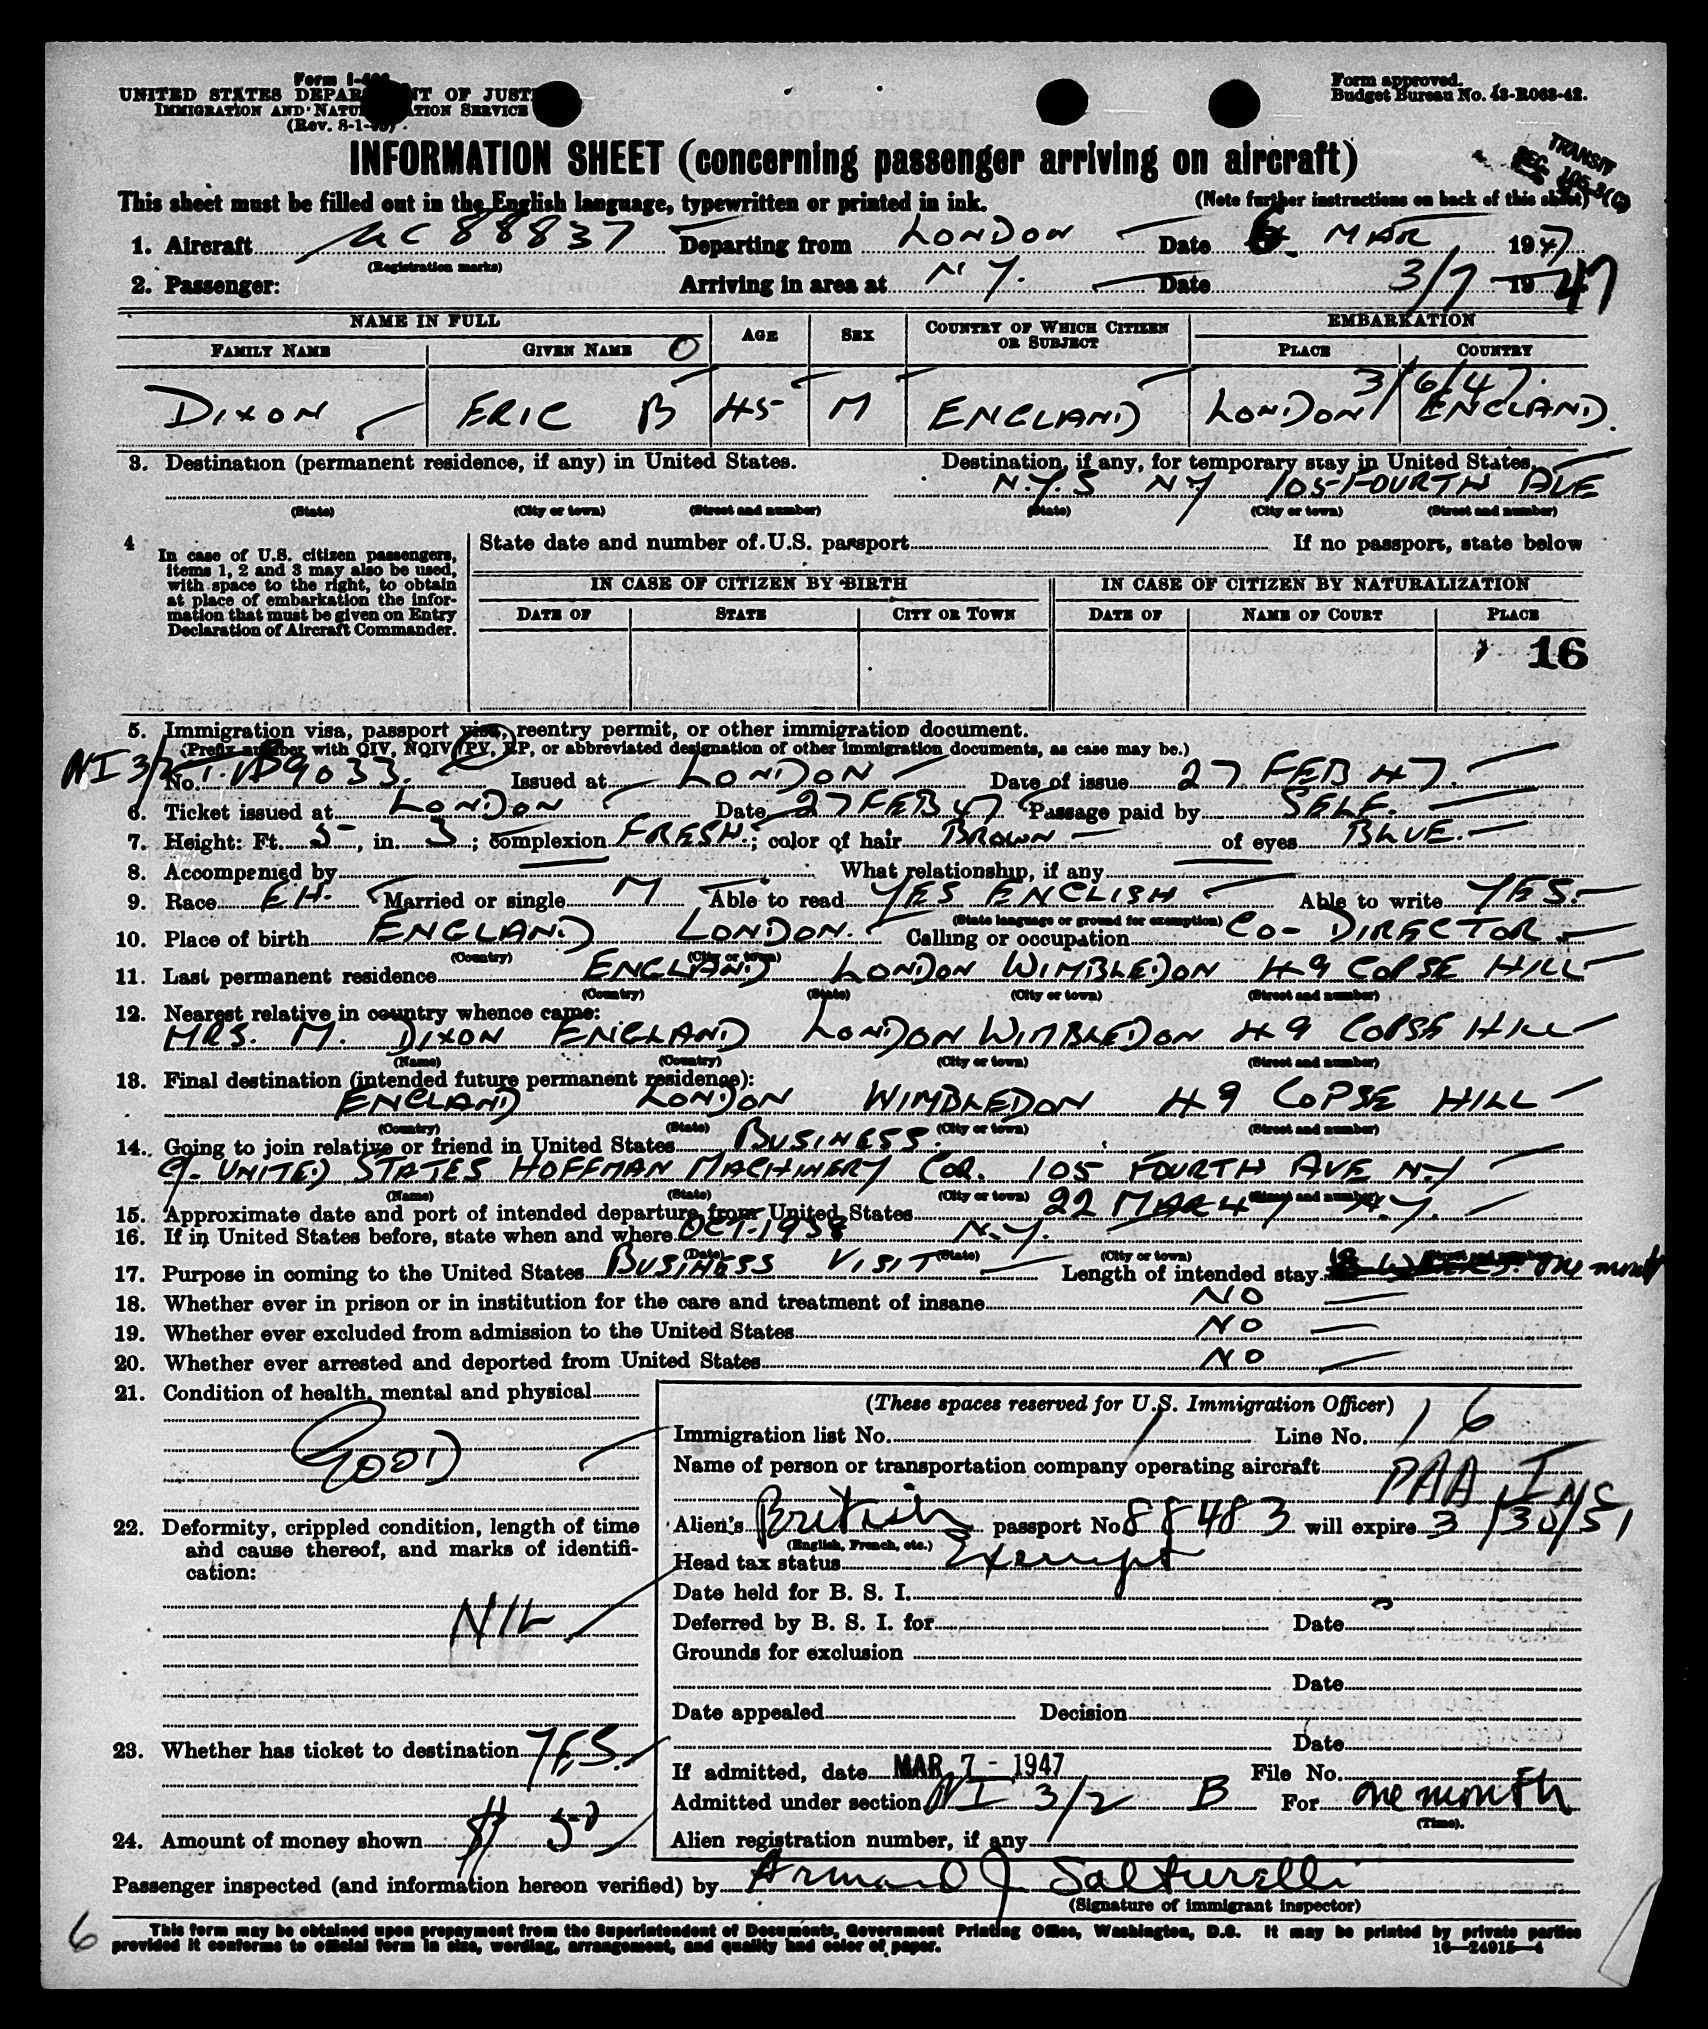 Form I-
UNITED STATES DEPAR T OF JUST
IMMIGRATION AND NATU ATION SERVICE
(Rev. 8-1- )
Form approved.
Budget Bureau No. 43-R063-42.
INFORMATION SHEET (concerning passenger arriving on aircraft)
TRANSIT
SEC
This sheet must be filled out in the English language, typewritten or printed in ink.
(Note further instructions on back of this sheet)
1. Aircraft NC 88837 Departing from LONDON Date 6. MAR 1947
(Registration marks)
2. Passenger: Arriving in area at N.Y. Date 3/7 1947
NAME IN FULL AGE SEX COUNTRY OF WHICH CITIZEN OR SUBJECT EMBARKATION
FAMILY NAME GIVEN NAME O PLACE COUNTRY
3/6/47.
DIXON ERIC B 45 M ENGLAND LONDON ENGLAND.
3. Destination (permanent residence, if any) in United States. Destination, if any, for temporary stay in United States.
N.Y.S NY 105 FOURTH AVE
(State) (City or town) (Street and number) (State) (City or town) (Street and number)
4 In case of U.S. citizen passengers, items 1, 2 and 3 may also be used, with space to the right, to obtain at place of embarkation the information that must be given on Entry Declaration of Aircraft Commander.
State date and number of U.S. passport If no passport, state below
IN CASE OF CITIZEN BY BIRTH IN CASE OF CITIZEN BY NATURALIZATION
DATE OF STATE CITY OR TOWN DATE OF NAME OF COURT PLACE
16
5. Immigration visa, passport visa, reentry permit, or other immigration document.
(Prefix number with QIV, NQIV, PV, RP, or abbreviated designation of other immigration documents, as case may be.)
NI 3/2 No. 9033. Issued at LONDON Date of issue 27 FEB 47.
6. Ticket issued at LONDON Date 27 FEB 47 Passage paid by SELF.
7. Height: Ft. 5, in. 3; complexion FRESH.; color of hair BROWN of eyes BLUE.
8. Accompanied by What relationship, if any
9. Race EH. Married or single M Able to read YES ENGLISH Able to write YES.
(State language or ground for exemption)
10. Place of birth ENGLAND LONDON. Calling or occupation CO- DIRECTOR
(Country) (City or town)
11. Last permanent residence ENGLAND LONDON WIMBLEDON 49 COPSE HILL
(Country) (State) (City or town) (Street and number)
12. Nearest relative in country whence came:
MRS. M. DIXON ENGLAND LONDON WIMBLEDON 49 COPSE HILL
(Name) (Country) (City or town) (Street and number)
13. Final destination (intended future permanent residence):
ENGLAND LONDON WIMBLEDON 49 COPSE HILL
(Country) (State) (City or town) (Street and number)
14. Going to join relative or friend in United States BUSINESS.
UNITED STATES HOFFMAN MACHINERY COR. 105 FOURTH AVE N.Y
(Name) (State) (City or town) (Street and number)
15. Approximate date and port of intended departure from United States 22 MAR 47 N.Y.
16. If in United States before, state when and where OCT-1938 N.Y.
(Date) (State) (City or town) (Street and number)
17. Purpose in coming to the United States BUSINESS VISIT Length of intended stay one month
18. Whether ever in prison or in institution for the care and treatment of insane NO
19. Whether ever excluded from admission to the United States NO
20. Whether ever arrested and deported from United States NO
21. Condition of health, mental and physical
GOOD
22. Deformity, crippled condition, length of time and cause thereof, and marks of identification:
NIL
23. Whether has ticket to destination YES.
24. Amount of money shown $ 50
(These spaces reserved for U.S. Immigration Officer)
Immigration list No. 1 Line No. 16
Name of person or transportation company operating aircraft PAA INS
Alien's British passport No 88483 will expire 3/30/51
(English, French, etc.)
Head tax status Exempt
Date held for B. S. I.
Deferred by B. S. I. for Date
Grounds for exclusion
Date
Date appealed Decision
Date
If admitted, date MAR 7 - 1947 File No.
Admitted under section NI 3/2 B For one month
(Time).
Alien registration number, if any
Passenger inspected (and information hereon verified) by Armand J Salturelli
(Signature of immigrant inspector)
6
This form may be obtained upon prepayment from the Superintendent of Documents, Government Printing Office, Washington, D.C. It may be printed by private parties
provided it conforms to official form in size, wording, arrangement, and quality and color of paper.
16—24915—4